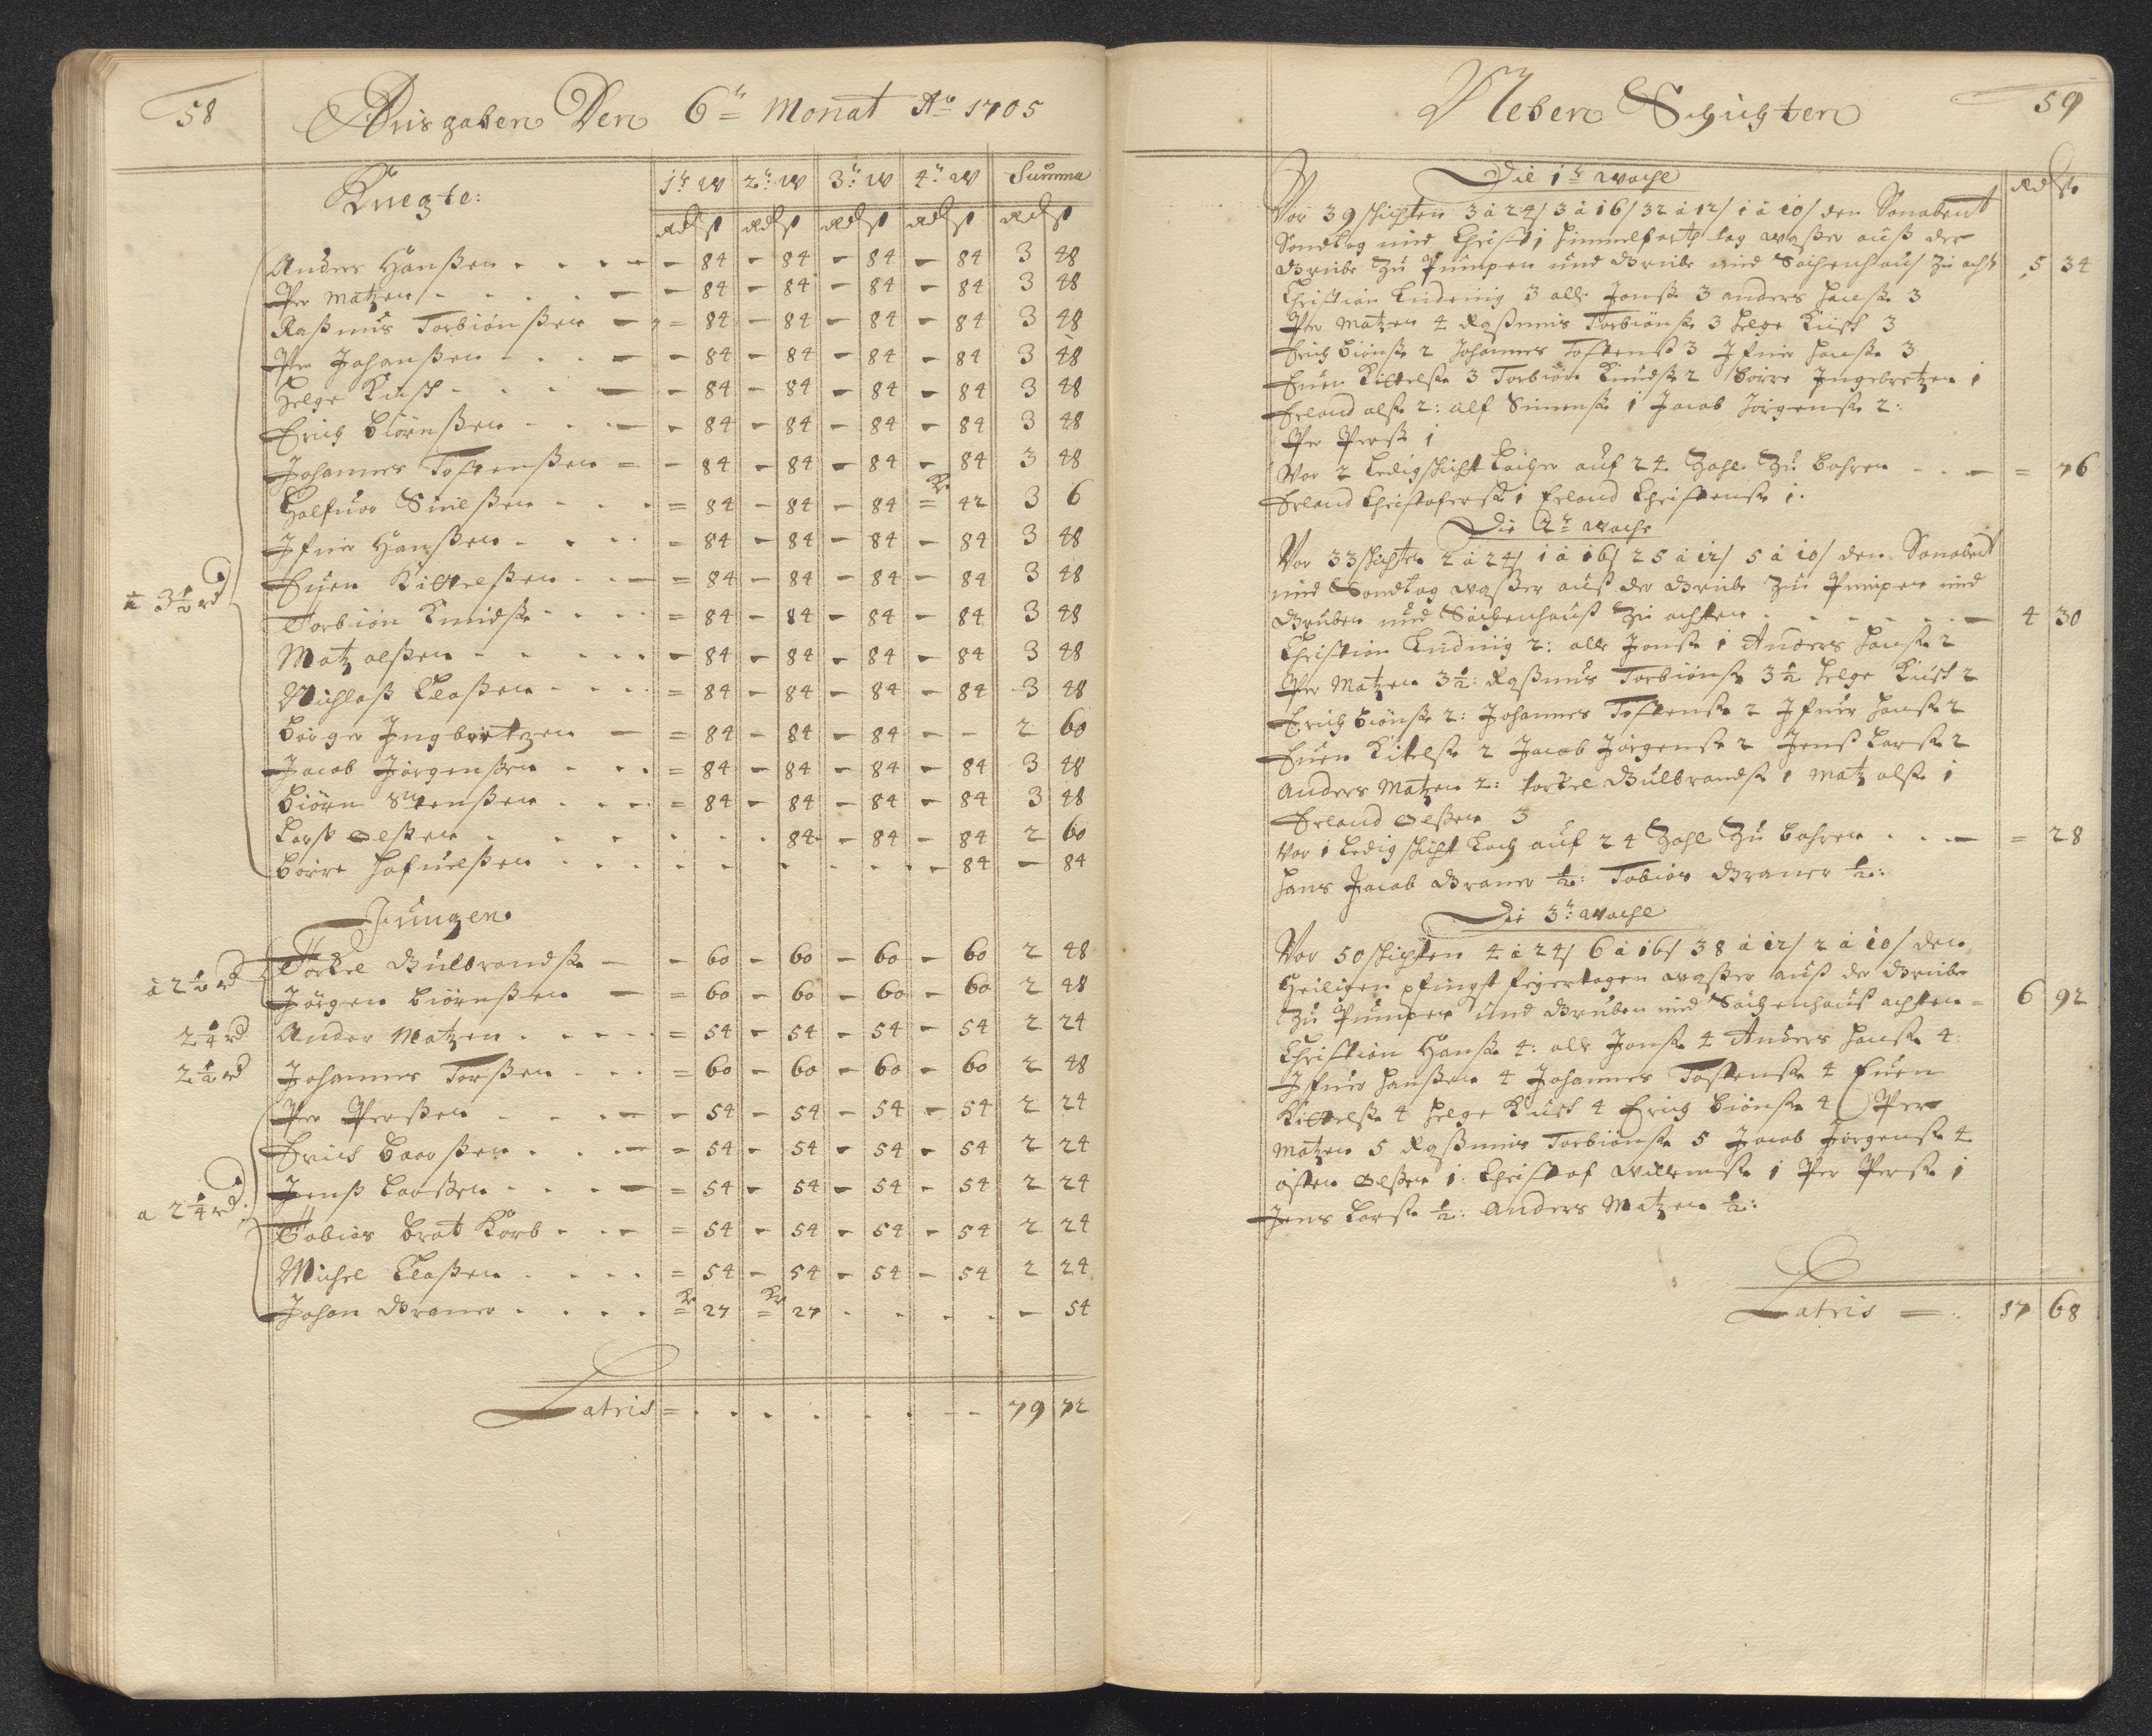 58
Ausgaben Den 6te Monat Ao 1705
Knegte:
1te W 2te W 3te W 4te W Summa
Rd ß Rd ß Rd ß Rd ß Rd ß
Anders Hanßen - 84 - 84 - 84 - 84 3 48
Per Matzen - 84 - 84 - 84 - 84 3 48
Raßmus Torbiönßen = 84 - 84 - 84 - 84 3 48
Per Johanßen - 84 - 84 - 84 - 84 3 48
Helge Kusk - 84 - 84 - 84 - 84 3 48
Erich Biörnßen - 84 - 84 - 84 - 84 3 48
Johannes Tostenßen - 84 - 84 - 84 - 84 3 48
Halfuor = 84 - 84 - 84 = Kr 42 3 6
Ifuer Hanßen = 84 - 84 - 84 - 84 3 48
à 3½ Rd
Euen Kittelßen = 84 - 84 - 84 - 84 3 48
Torbiön Knudß = 84 - 84 - 84 - 84 3 48
Matz olßen - 84 - 84 - 84 - 84 3 48
Nichlaß Claßen = 84 - 84 - 84 - 84 3 48
Börger Ingbretzen = 84 - 84 - 84 - - 2 60
Jacob Jörgenßen = 84 - 84 - 84 - 84 3 48
Biörn Stenßen = 84 - 84 - 84 - 84 3 48
Larß olßen 84 - 84 - 84 2 60
Börre 84 - 84
Jungen
Torkel Gulbrandß - 60 - 60 - 60 - 60 2 48
à 2½ Rd
Jörgen Biörnßen = 60 - 60 - 60 - 60 2 48
2¼ Rd Ander Matzen = 54 - 54 - 54 - 54 2 24
2½ Rd Johannes Torßen = 60 - 60 - 60 - 60 2 48
Per Perßen - 54 - 54 - 54 - 54 2 24
Erich Larßen = 54 - 54 - 54 - 54 2 24
Jenß Larßen = 54 - 54 - 54 - 54 2 24
a 2¼ Rd
Tobias Brat Korb = 54 - 54 - 54 - 54 2 24
Michel Claßen = 54 - 54 - 54 - 54 2 24
Johan Graner = Kr 27 = Kr 27 - 54
Latris = 79 72
59
Neben Schichten
Rd ß
Die 1te Woche
Vor 39 schichten 3 à 24/ 3 à 16/ 32 à 12/ 1 à 10/ den Sonabent
Sondtag und Christi himmelfarth tag waßer auß der
Grube Zu Pumpen und Grube und Sachenhauß Zu acht 5 34
Christian Ludwig 3 alle Jonß 3 anders Hanß 3
Per Matzen 4 Raßmus Torbiönß 3 Helge Kusk 3
Erich Biönß 2 Johannes Tostenß 3 Ifuer Hanß 3
Euen Kittelß 3 Torbiön Knudß 2 Börre Ingebretzen 1
Erland olß 2: alf Simenß 1 Jacob Jörgenß 2:
Per Perß 1
Vor 2 Ledig schicht Löcher auf 24 Zohl Zu bohren = 76
Erland Christoferß 1 Erland Christenß 1.
Die 2te Woche
Vor 33 schichten 2 à 24/ 1 à 16/ 25 à 12/ 5 à 10/ den Sonabent
und Sondtag waßer auß der Grube Zu Pumpen und
Gruben und Sachenhauß Zu achten 4 30
Christian Ludwig 2: alle Jonß 1 Anders Hanß 2
Per Matzen 3½: Raßmus Torbiönß 3½ Helge Kusk 2
Erich Biönß 2: Johannes Tostenß 2 Ifuer Hanß 2
Euen Kitelß 2 Jacob Jörgenß 2 Jenß Larß 2
Anders Matzen 2: Torkel Gulbrandß 1 Matz olß 1
Erland olßen 3
Vor 1 Ledig schicht Loch auf 24 Zohl Zu bohren = 28
Hans Jacob Graner ½: Tobias Graner ½:
Die 3te Woche
Vor 50 schichten 4 à 24/ 6 à 16/ 38 à 12/ 2 à 10/ den
Heiligen pfingst feyertagen waßer auß der Grube
Zu Pumpen und Gruben und Sachenhauß achten = 6 92
Christian Hanß 4: alle Jonß 4 Anders Hanß 4:
Ifuer Hanßen 4 Johannes Tostenß 4 Euen
Kittelß 4 Helge Kusk 4 Erich Biönß 4 Per
Matzen 5 Raßmus Torbiönß 5 Jacob Jörgenß 4
olßen 1: Christof Willumß 1 Per Perß 1
Jens Larß ½: Anders Matzen ½:
Latris = 17 68